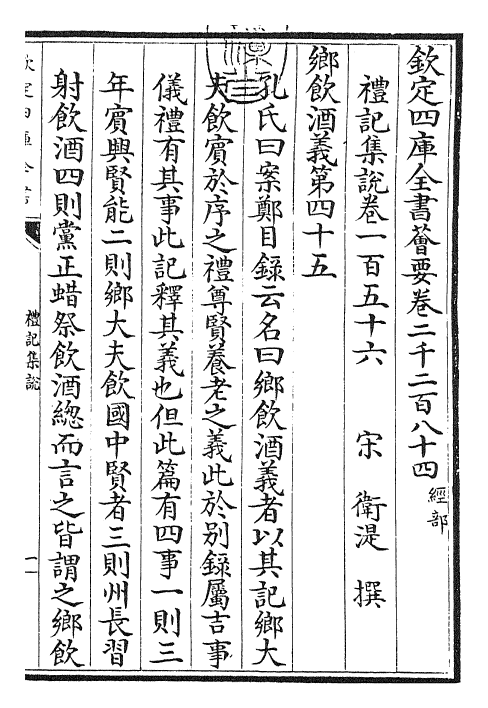 欽定四庫全書薈要卷二千二百八十四 經部
禮記集說卷一百五十六 宋 衛湜 撰
鄉飲酒義第四十五
孔氏曰案鄭目錄云名曰鄉飲酒義者以其記鄉大
夫飲賓於序之禮尊賢養老之義此於別錄屬吉事
儀禮有其事此記釋其義也但此篇有四事一則三
年賓興賢能二則鄉大夫飲國中賢者三則州長習
射飲酒四則黨正蜡祭飲酒總而言之皆謂之鄉飲
欽定四庫全書
禮記集說
一